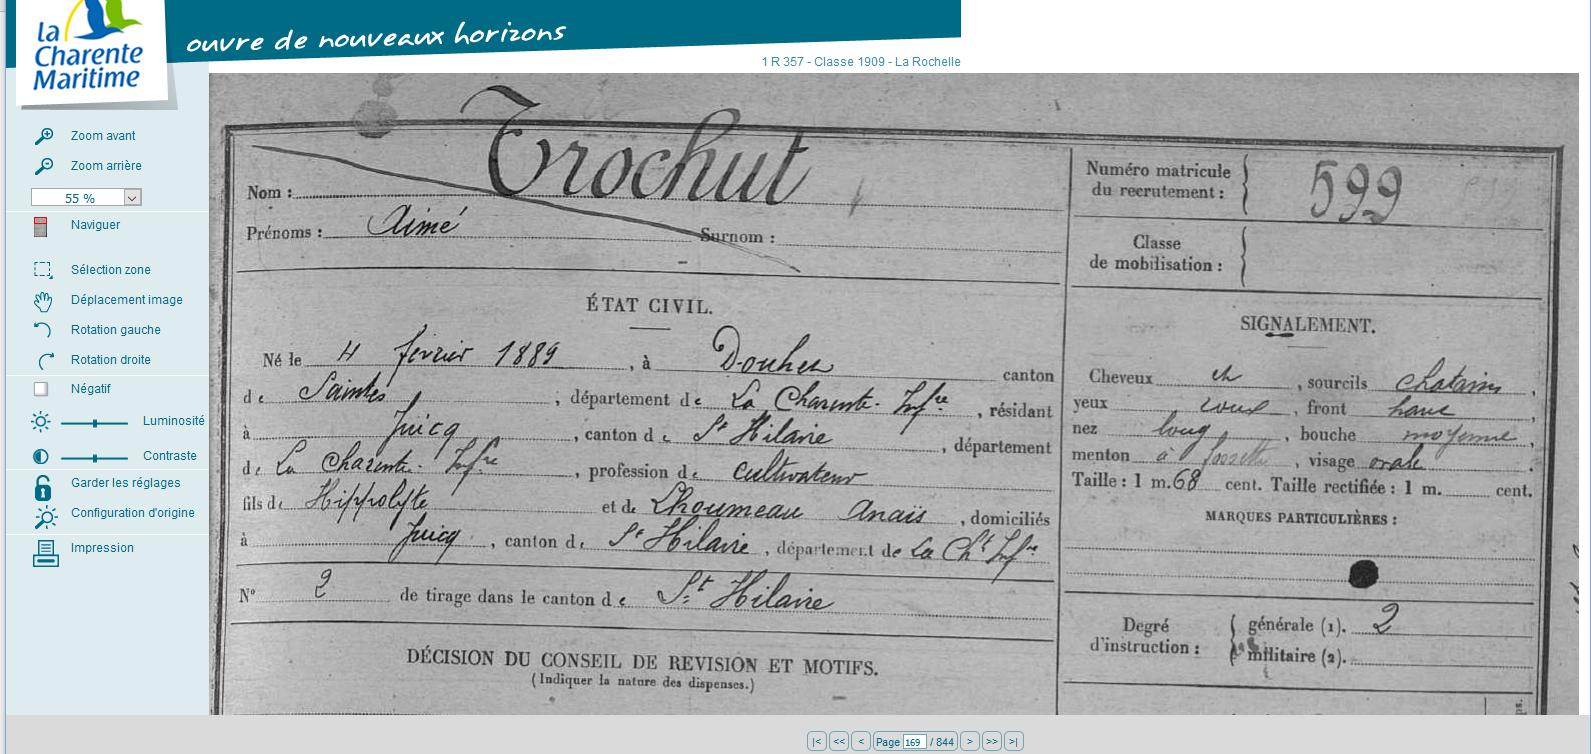 la
Charente
Maritime
ouvre de nouveaux horizons
1 R 357 - Classe 1909 - La Rochelle
Zoom avant
Zoom arrière
55 %
Naviguer
Sélection zone
Déplacement image
Rotation gauche
Rotation droite
Négatif
Luminosité
Contraste
Garder les réglages
Configuration d'origine
Impression
Nom : Trochut
Prénoms : Aimé Surnom :
Numéro matricule
du recrutement : 599
Classe
de mobilisation :
ÉTAT CIVIL.
Né le 4 fevrier 1889, à Douhet canton
de Saintes, département de La Charente-Infre, résidant
à Juicq, canton de St Hilaire, département
de La Charente-Infre, profession de cultivateur
fils de Hippolyte et de Lhoumeau Anais, domiciliés
à Juicq, canton de St Hilaire, département de La Cht Infre
N° 2 de tirage dans le canton de St Hilaire
DÉCISION DU CONSEIL DE REVISION ET MOTIFS.
(Indiquer la nature des dispenses.)
SIGNALEMENT.
Cheveux ch, sourcils chatains,
yeux roux, front haut,
nez long, bouche moyenne,
menton à fossette, visage ovale.
Taille : 1 m. 68 cent. Taille rectifiée : 1 m. cent.
MARQUES PARTICULIÈRES :
Degré
d'instruction :
générale (1). 2
militaire (2).
|< << < Page 169 / 844 > >> >|